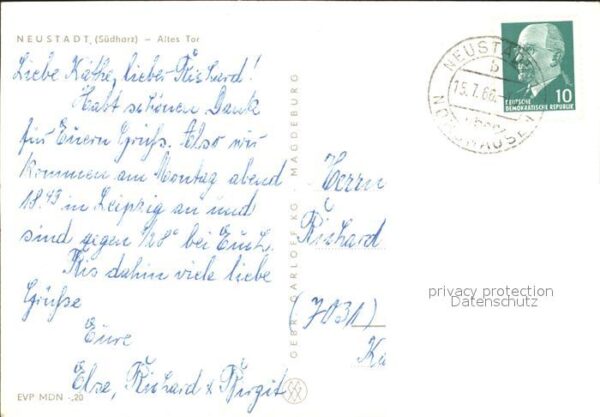 NEUSTADT, (Südharz) – Altes Tor
Liebe Käthe, lieber Richard!
Habt schönen Dank
für Euern Gruß. Also wir
kommen am Montag abend
18.43 in Leipzig an und
sind gegen 1/2 8° bei Euch.
Bis dahin viele liebe
Grüße
Eure
Else, Richard & Birgit
EVP MDN -,20
GEBR. GARLOFF KG · MAGDEBURG
NEUSTADT
b
15.7.66
NORDHAUSEN
DEUTSCHE
DEMOKRATISCHE REPUBLIK
10
Herrn
Richard
(7031)
privacy protection
Datenschutz